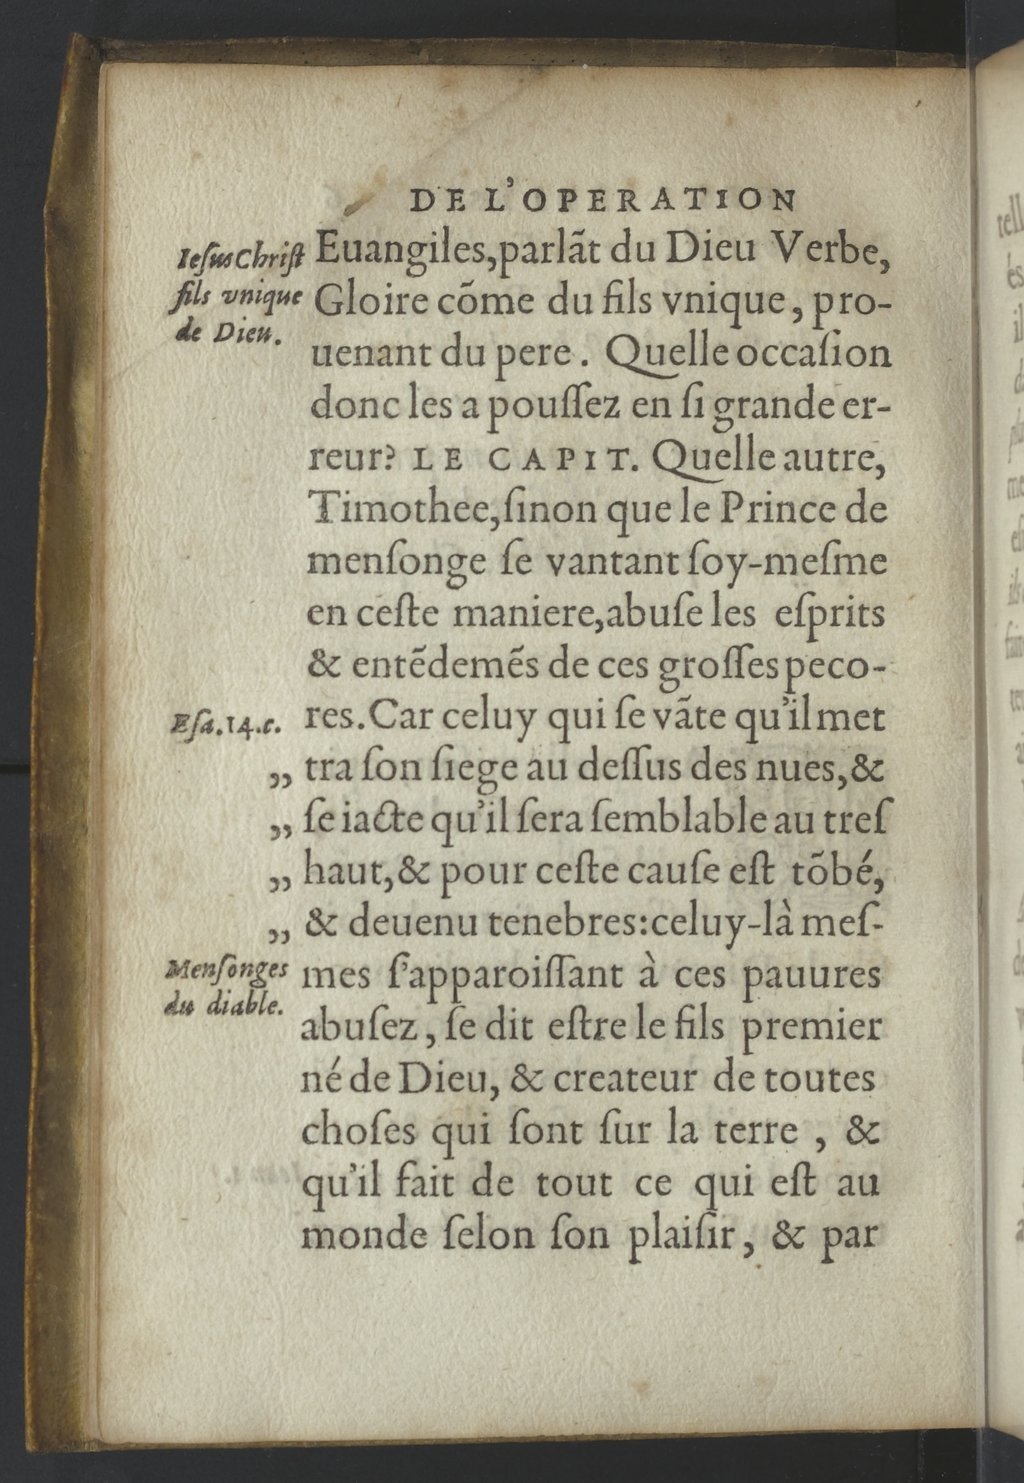 DE L'OPERATION
Ieſus Chriſt
fils vnique
de Dieu.
Euangiles, parlãt du Dieu Verbe,
Gloire cõme du fils vnique, pro-
uenant du pere. Quelle occaſion
donc les a pouſſez en ſi grande er-
reur? LE CAPIT. Quelle autre,
Timothee, ſinon que le Prince de
menſonge ſe vantant ſoy-meſme
en ceſte maniere, abuſe les eſprits
& entẽdemẽs de ces groſſes peco-
Eſa. 14. c.
res. Car celuy qui ſe vãte qu'il met
„ tra ſon ſiege au deſſus des nues, &
„ ſe iacte qu'il ſera ſemblable au treſ
„ haut, & pour ceſte cauſe eſt tõbé,
„ & deuenu tenebres: celuy-là meſ-
Menſonges
du diable.
mes ſ'apparoiſſant à ces pauures
abuſez, ſe dit eſtre le fils premier
né de Dieu, & createur de toutes
choſes qui ſont ſur la terre, &
qu'il fait de tout ce qui eſt au
monde ſelon ſon plaiſir, & par